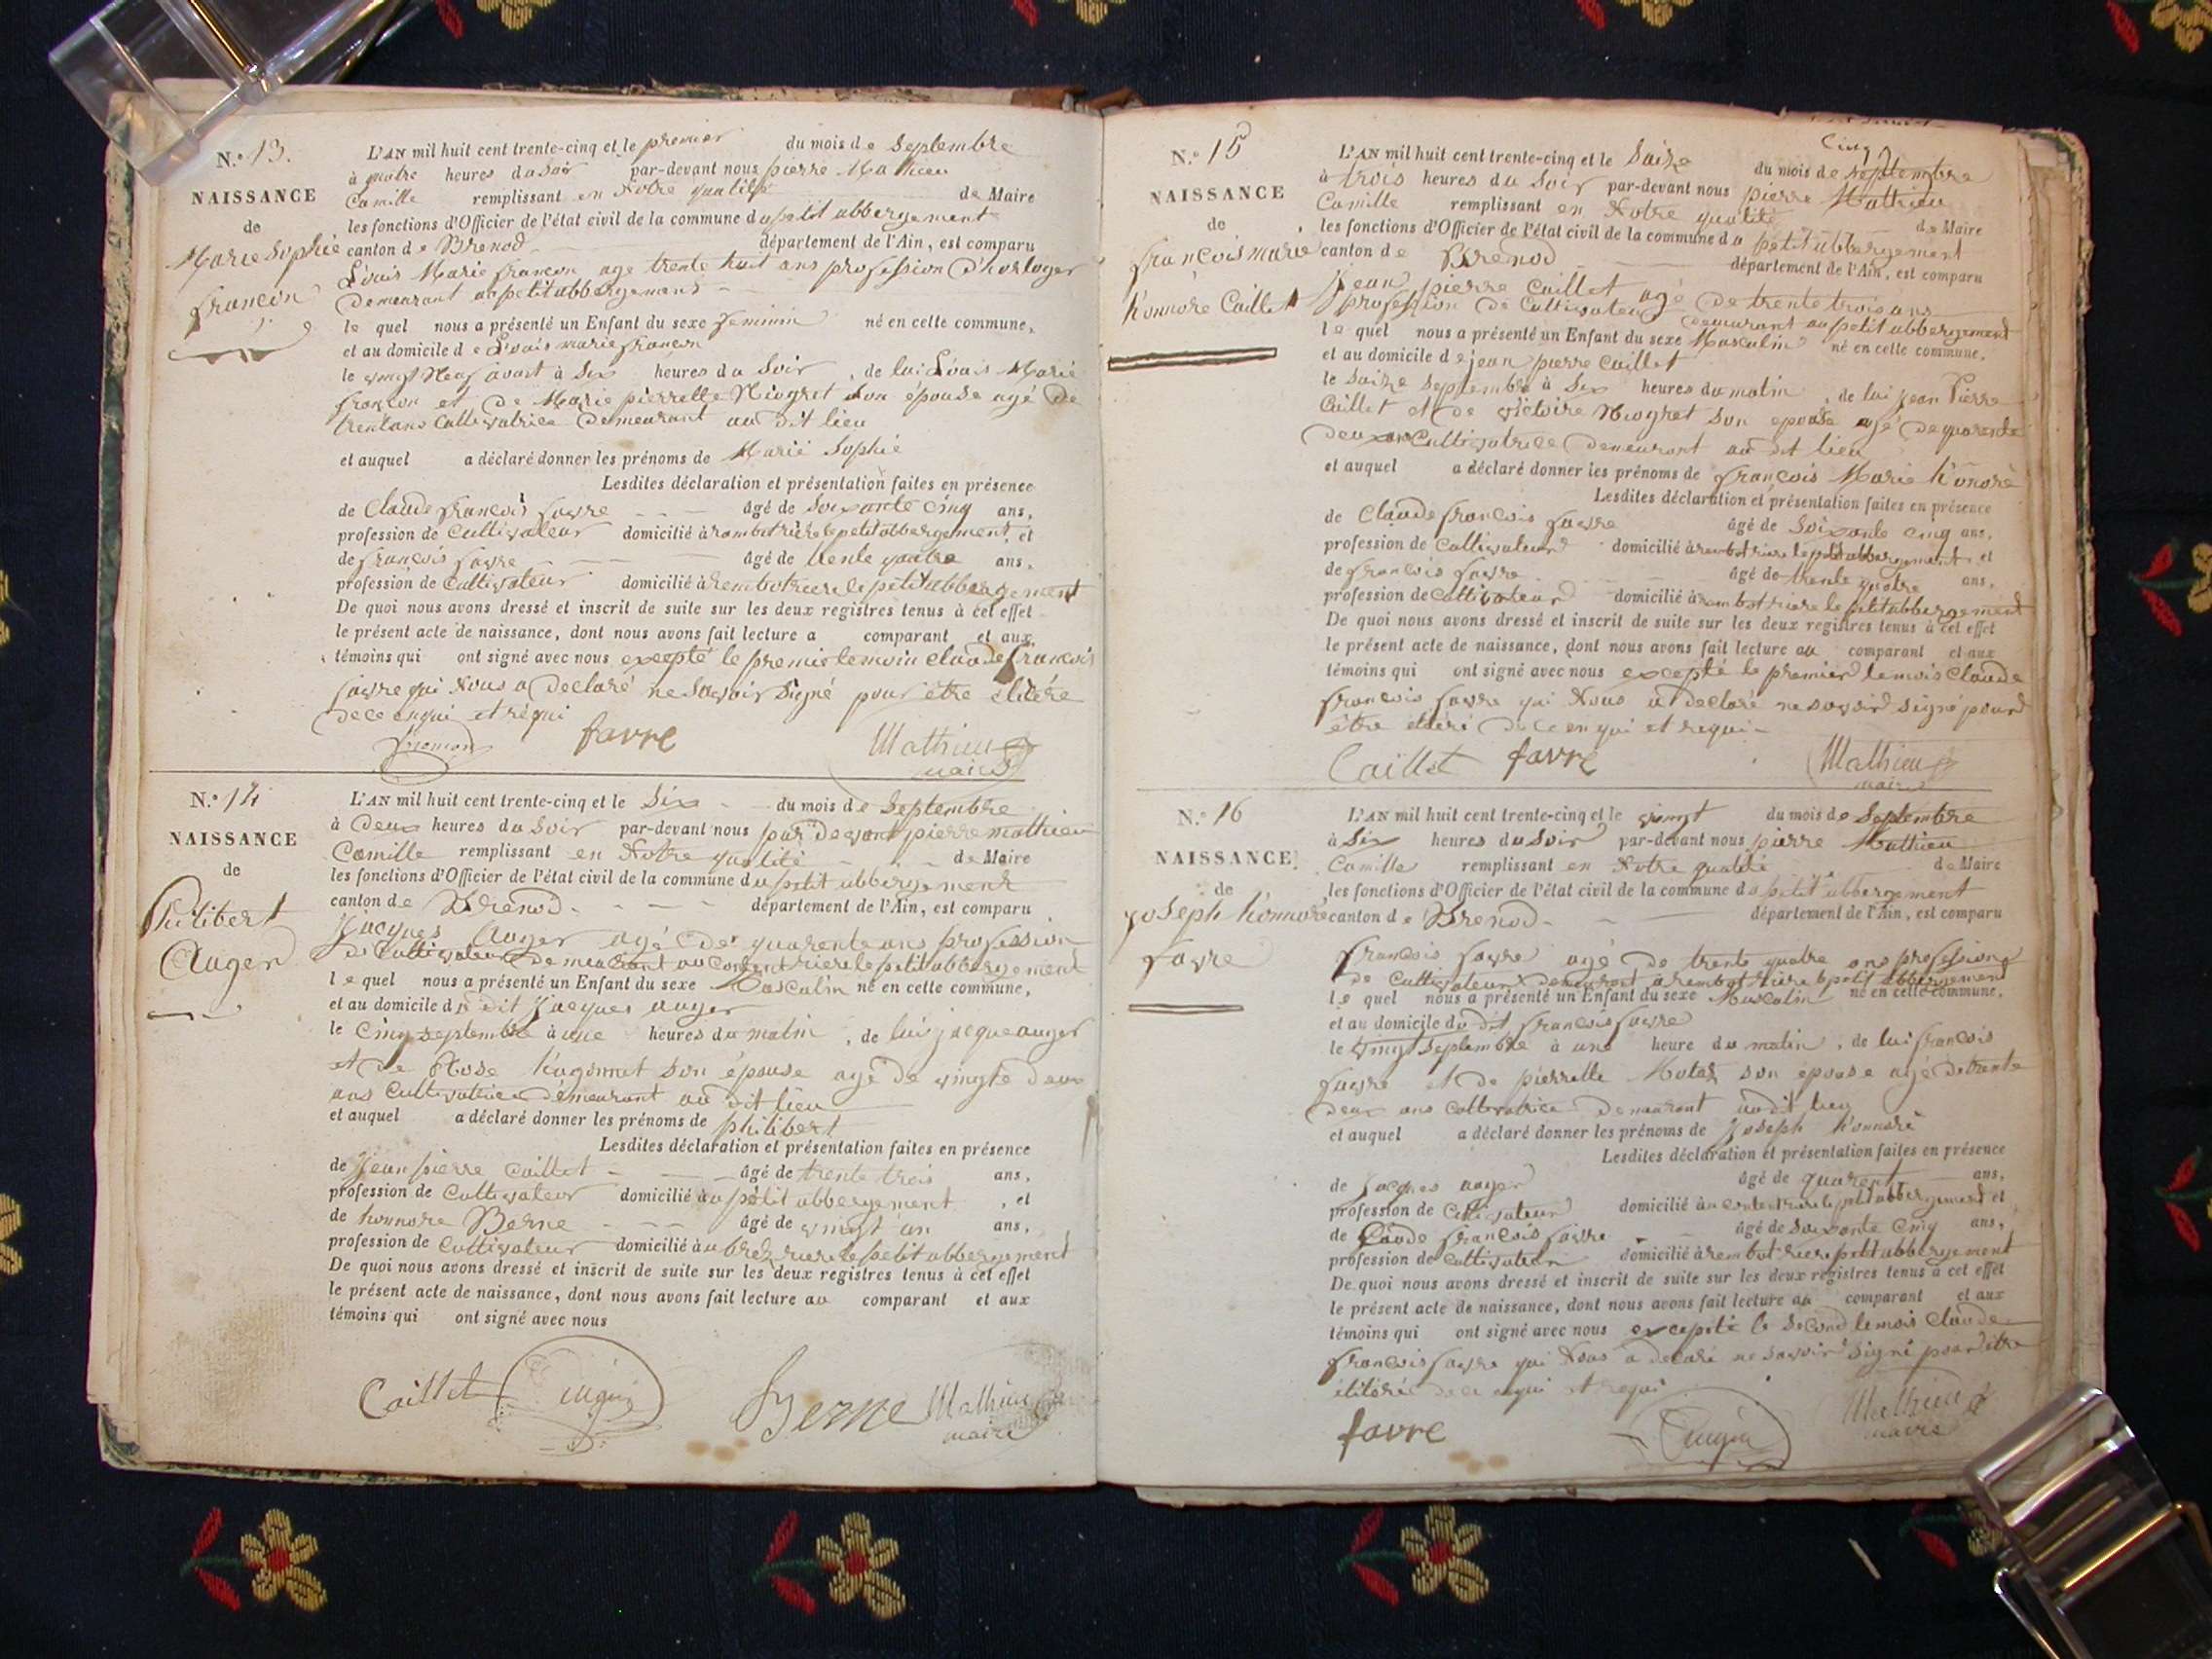 N.º 13.
NAISSANCE
de
Marie Sophie
francon
L'AN mil huit cent trente-cinq et le premier du mois de Septembre
à quatre heures du Soir par-devant nous pierre Mathieu
Camille remplissant en Notre qualité de Maire
les fonctions d'Officier de l'état civil de la commune du petit abbergement
canton de Brenod département de l'Ain, est comparu
Louis Marie francon age trente huit ans profession d'horloger
Demeurant au petit abbergement
le quel nous a présenté un Enfant du sexe feminin né en cette commune,
et au domicile de Louis marie francon
le vingt Neuf avout à Six heures du Soir, de lui Louis Marie
francon et de Marie pierrette Niogret son épouse agé de
trent ans Cultivatrice Demeurant au dit lieu
et auquel a déclaré donner les prénoms de Marie Sophie
Lesdites déclaration et présentation faites en présence
de Claude francois favre âgé de Soixante cinq ans,
profession de Cultivateur domicilié à rambot rière le petit abbergement, et
de francois favre âgé de trente quatre ans,
profession de Cultivateur domicilié à rembot riere le petit abbergement
De quoi nous avons dressé et inscrit de suite sur les deux registres tenus à cet effet
le présent acte de naissance, dont nous avons fait lecture a comparant et aux
témoins qui ont signé avec nous excepté le premie temoin claude francois
favre qui Nous a Declaré ne Savoir Signé pour être
de ce enqui et réqui
favre Mathieu
maire
N.º 14
NAISSANCE
de
Philibert
Auger
L'AN mil huit cent trente-cinq et le Six du mois de Septembre
à Deux heures du Soir par-devant nous par Devant pierre mathieu
Camille remplissant en Notre qualité de Maire
les fonctions d'Officier de l'état civil de la commune du petit abbergement
canton de Brenod département de l'Ain, est comparu
Jacques Auger agé De quarente ans profession
de Cultivateur Demeurant au Content riere le petit abbergement
le quel nous a présenté un Enfant du sexe Masculin né en cette commune,
et au domicile du dit Jacques auger
le Cinq septembre à une heures du matin, de lui jacque auger
et de Rose hugonnet son épouse agé de vingte deux
ans Cultivatrice demeurant au dit lieu
et auquel a déclaré donner les prénoms de philibert
Lesdites déclaration et présentation faites en présence
de Jean pierre Caillet âgé de trente trois ans,
profession de Cultivateur domicilié au petit abbergement, et
de honnore Berne âgé de vingt un ans,
profession de Cultivateur domicilié au riere le petit abbergement
De quoi nous avons dressé et inscrit de suite sur les deux registres tenus à cet effet
le présent acte de naissance, dont nous avons fait lecture au comparant et aux
témoins qui ont signé avec nous
Caillet Berne Mathieu
maire
N.º 15
NAISSANCE
de
francois marie
honnore Caillet
Cinq
L'AN mil huit cent trente-cinq et le Saize du mois de Septembre
à trois heures du Soir par-devant nous pierre Mathieu
Camille remplissant en Notre qualité de Maire
les fonctions d'Officier de l'état civil de la commune du petit abbergement
canton de Brenod département de l'Ain, est comparu
Jean pierre Caillet agé De trente trois ans
profession de Cultivateur demeurant au petit abbergement
le quel nous a présenté un Enfant du sexe Masculin né en cette commune,
et au domicile de jean pierre Caillet
le Saize Septembre à Six heures du matin, de lui jean Pierre
Caillet et de victoire Niogret son epouse agé De quarente
deux ans Cultivatrice Demeurant au dit lieu
et auquel a déclaré donner les prénoms de francois Marie honoré
Lesdites déclaration et présentation faites en présence
de Claude francois favre âgé de Soixante cinq ans,
profession de Cultivateur domicilié à rembot riere le petit abbergement, et
de francois favre âgé de trente quatre ans,
profession de Cultivateur domicilié à rambot riere le petit abbergement
De quoi nous avons dressé et inscrit de suite sur les deux registres tenus à cet effet
le présent acte de naissance, dont nous avons fait lecture au comparant et aux
témoins qui ont signé avec nous excepté le premier temois Claude
francois favre qui Nous a declaré ne savoir signé pour
être de ce enqui et requi
Caillet favre Mathieu
maire
N.º 16
NAISSANCE
de
Joseph honnore
favre
L'AN mil huit cent trente-cinq et le vingt du mois de Septembre
à Six heures du Soir par-devant nous pierre Mathieu
Camille remplissant en Notre qualité de Maire
les fonctions d'Officier de l'état civil de la commune du petit abbergement
canton de Brenod département de l'Ain, est comparu
francois favre agé De trente quatre ans profession
de Cultivateur demeurant à rembot riere le petit abbergement
le quel nous a présenté un Enfant du sexe Masculin né en cette commune,
et au domicile du dit francois favre
le vingt Septembre à une heure du matin, de lui francois
favre et de pierrette son epouse agé de trente
deux ans Cultivatrice Demeurant audit lieu
et auquel a déclaré donner les prénoms de Joseph honnoré
Lesdites déclaration et présentation faites en présence
de Jacques auger âgé de quarent ans,
profession de Cultivateur domicilié au riere le petit abbergement et
de Claude francois favre âgé de Soixante Cinq ans,
profession de Cultivateur domicilié à rembot riere petit abbergement
De quoi nous avons dressé et inscrit de suite sur les deux registres tenus à cet effet
le présent acte de naissance, dont nous avons fait lecture au comparant et aux
témoins qui ont signé avec nous excepté le Second temois Claude
francois favre qui Nous a declaré ne savoir signé pour être
de ce enqui et requi
favre Mathieu
maire